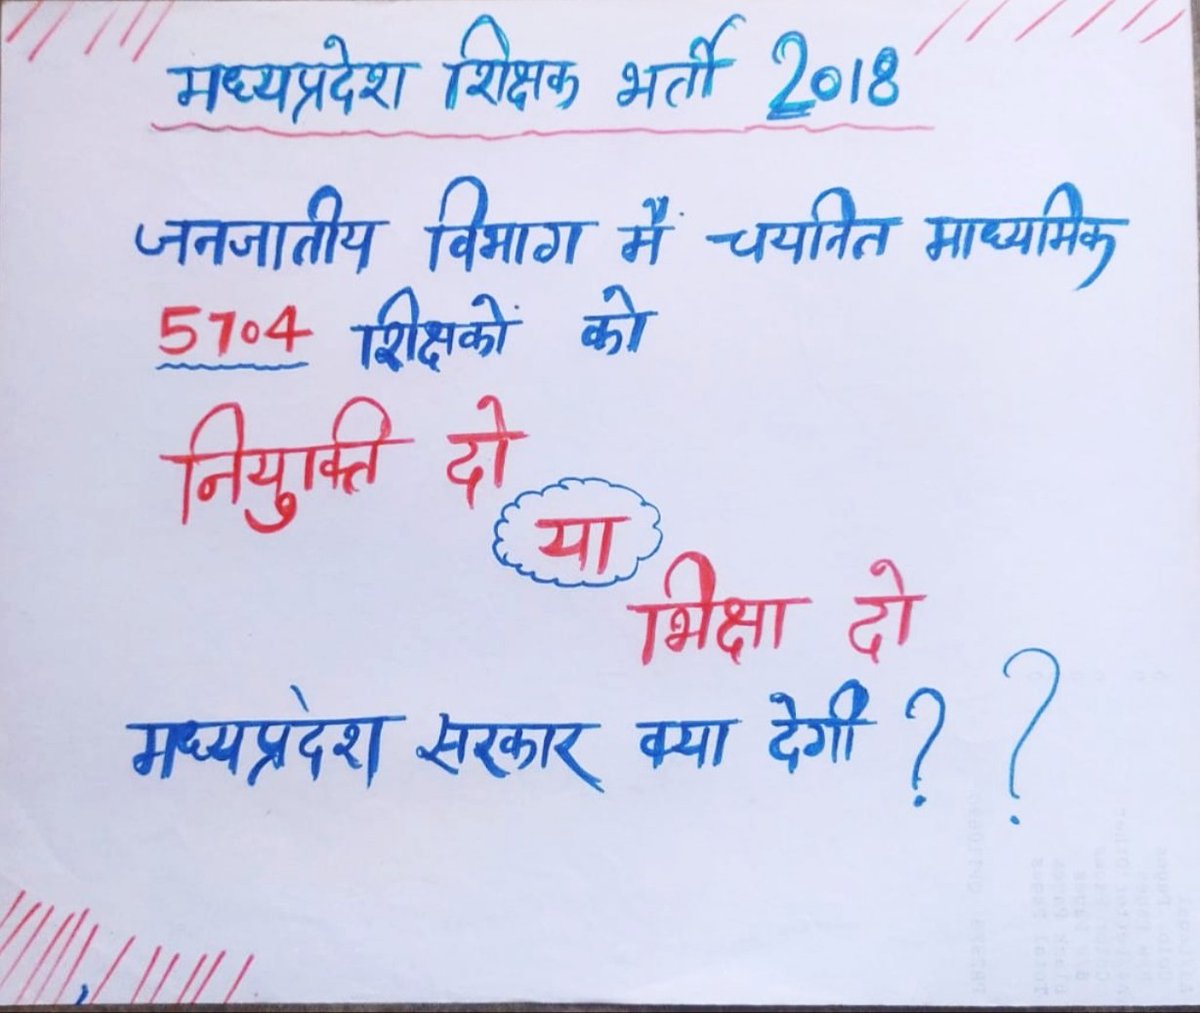 मध्यप्रदेश शिक्षक भर्ती 2018
जनजातीय विभाग में चयनित माध्यमिक
5704 शिक्षकों को
नियुक्ति दो
या
भिक्षा दो
मध्यप्रदेश सरकार क्या देगी ? ?